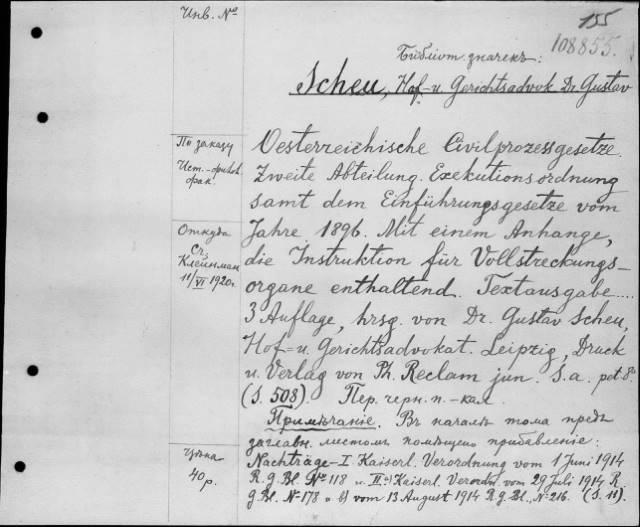 Инв. №
155
108855.
Библіот. значекъ:
Scheu, Hof- u. Gerichtsadvok Dr. Gustav
По заказу
Ист.-филол.
фак.
Откуда
Ст.
Клейнман
11/VI 1920 г.
Цѣна
40 р.
Oesterreichische Civilprozessgesetze.
Zweite Abteilung. Exekutionsordnung
samt dem Einführungsgesetze vom
Jahre 1896. Mit einem Anhange,
die Instruktion für Vollstreckungs-
organe enthaltend. Textausgabe....
3 Auflage, hrsg. von Dr. Gustav Scheu,
Hof- u. Gerichtsadvokat. Leipzig, Druck
u. Verlag von Ph. Reclam jun. S. a. pet 8°
(S. 508). Пер. черн. п.-кал.
Примѣчаніе. Въ началѣ тома предъ
заглавн. листомъ помѣщено прибавленіе:
Nachträge-I Kaiserl. Verordnung vom 1 Juni 1914
R. g. Bl. № 118 u. II a) Kaiserl. Verordn. vom 29 Juli 1914 R.
g. Bl. № 178 u b) vom 13 August 1914 R. g. Bl., № 216. (S. 11).